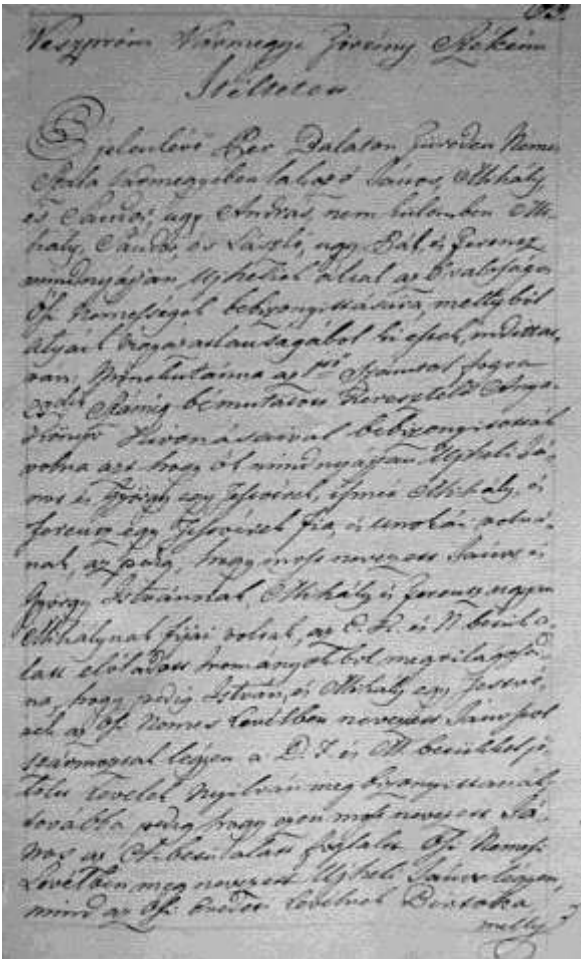 63.
Veszprém Vármegye Törvény Székén
Itéltetett
E jelenlévő Per Balaton Füreden Nemes
Szala Vármegyében lakozó János, Mihály,
és Sándor, ugy András, nem külömben Mi-
hály, Sándor és László, ugy Pál, és Ferencz
mindnyájan Ujheliek által az Országos
Ősi Nemességek bebizonyittására, mellyből
Atyaik vigyázatlanságából ki estek, indittat-
van, Minekutánna az 1ső Számtol fogva
Számig bémutatott Keresztelő Anya-
könyv Kivonásaival bebizonyitották
volna azt hogy ők mindnyájjan Ujheli Já-
nos és György egy Testvérek, ismét Mihály, és
Ferencz egy Testvérek fia, és unokái volná-
nak, az pedig, hogy most nevezett János, és
György Istvánnak, Mihály és Ferencz ugyan
Mihálynak fijai voltak, az és N. betük a-
latt előladott Irományokból megvilágosod-
na, hogy pedig István, és Mihály egy Testvé-
rek az Ősi Nemes Levélben nevezett Jánostol
származtak légyen a D. J. és M. betükkel je-
lelt Levelek nyilván megbizonyittanák,
tovabbá pedig hogy azon most nevezett Já-
nos az betü alatt foglalt Ősi Nemesi
Levélben meg nevezett Ujheli János légyen,
mind az Ősi Eredeti Levelnek Birtoka
melly